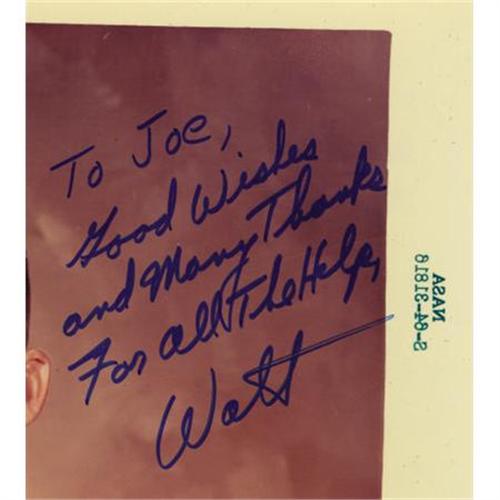 To Joe,
Good Wishes
and Many Thanks
For all The Help,
Walt
NASA
S-64-31818